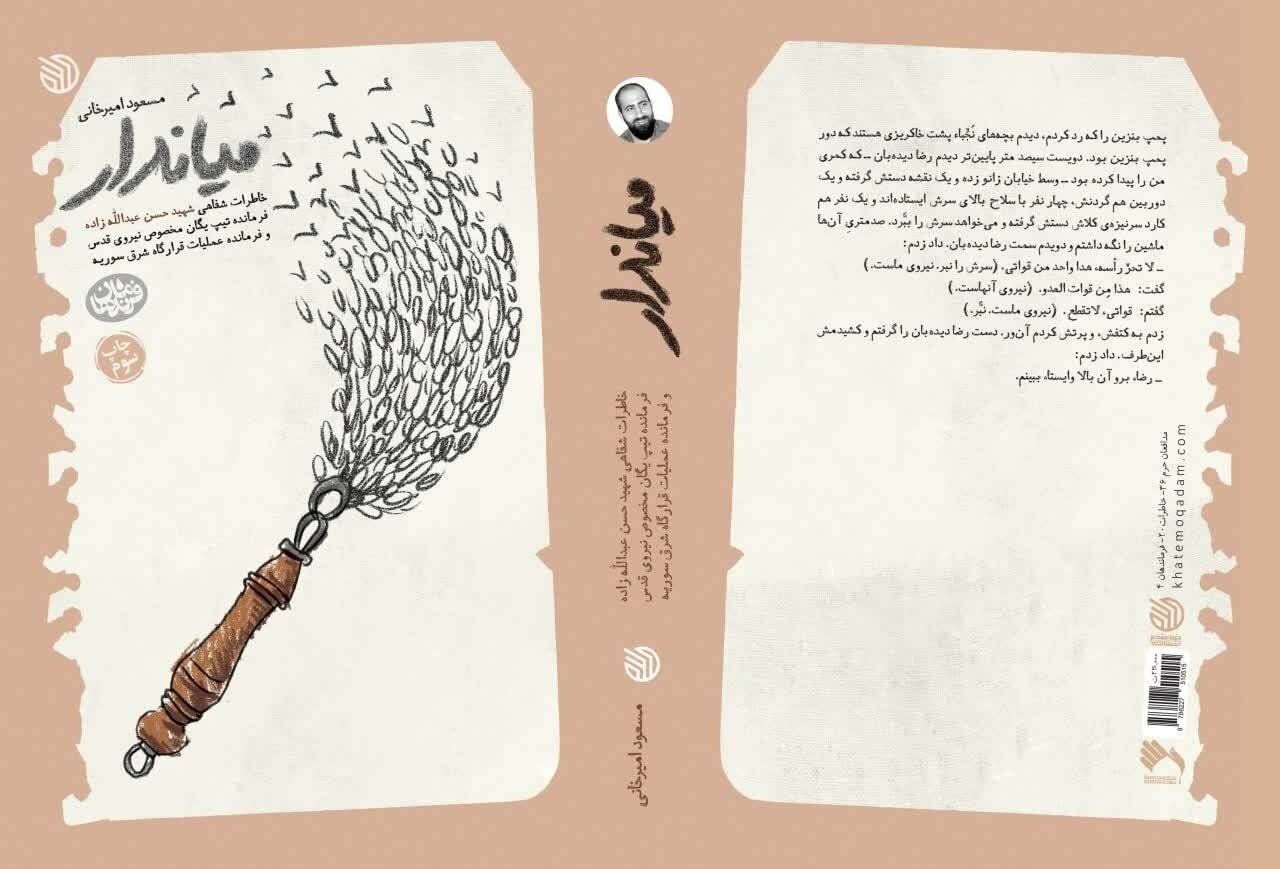 مسعود امیرخانی
میاندار
خاطرات شفاهی شهید حسن عبدالله زاده
فرمانده تیپ یگان مخصوص نیروی قدس
و فرمانده عملیات قرارگاه شرق سوریه
چاپ
سوم
میاندار
خاطرات شفاهی شهید حسن عبدالله زاده
فرمانده تیپ یگان مخصوص نیروی قدس
و فرمانده عملیات قرارگاه شرق سوریه
مسعود امیرخانی
پمپ بنزین را که رد کردم، دیدم بچه‌های نُجَباء پشت خاکریزی هستند که دور
پمپ بنزین بود. دویست سیصد متر پایین‌تر دیدم رضا دیده‌بان ـ که کمری
من را پیدا کرده بود ـ وسط خیابان زانو زده و یک نقشه دستش گرفته و یک
دوربین هم گردنش، چهار نفر با سلاح بالای سرش ایستاده‌اند و یک نفر هم
کارد سرنیزه‌ی کلاش دستش گرفته و می‌خواهد سرش را ببُّرد. صدمتریِ آن‌ها
ماشین را نگه داشتم و دویدم سمت رضا دیده‌بان. داد زدم:
ـ لا تحزّ رأسه، هدا واحد من قواتی. (سرش را نبر. نیروی ماست.)
گفت: هذا مِن قوات العدو. (نیروی آنهاست.)
گفتم: قواتی، لاتقطع. (نیروی ماست. نبُّر.)
زدم به کتفش، و پرتش کردم آن‌ور. دست رضا دیده‌بان را گرفتم و کشیدمش
این‌طرف. داد زدم:
ـ رضا، برو آن بالا وایستا، ببینم.
مدافعان حرم ۳۶- خاطرات ۲۰- فرماندهان ۴
khatemoqadam.com